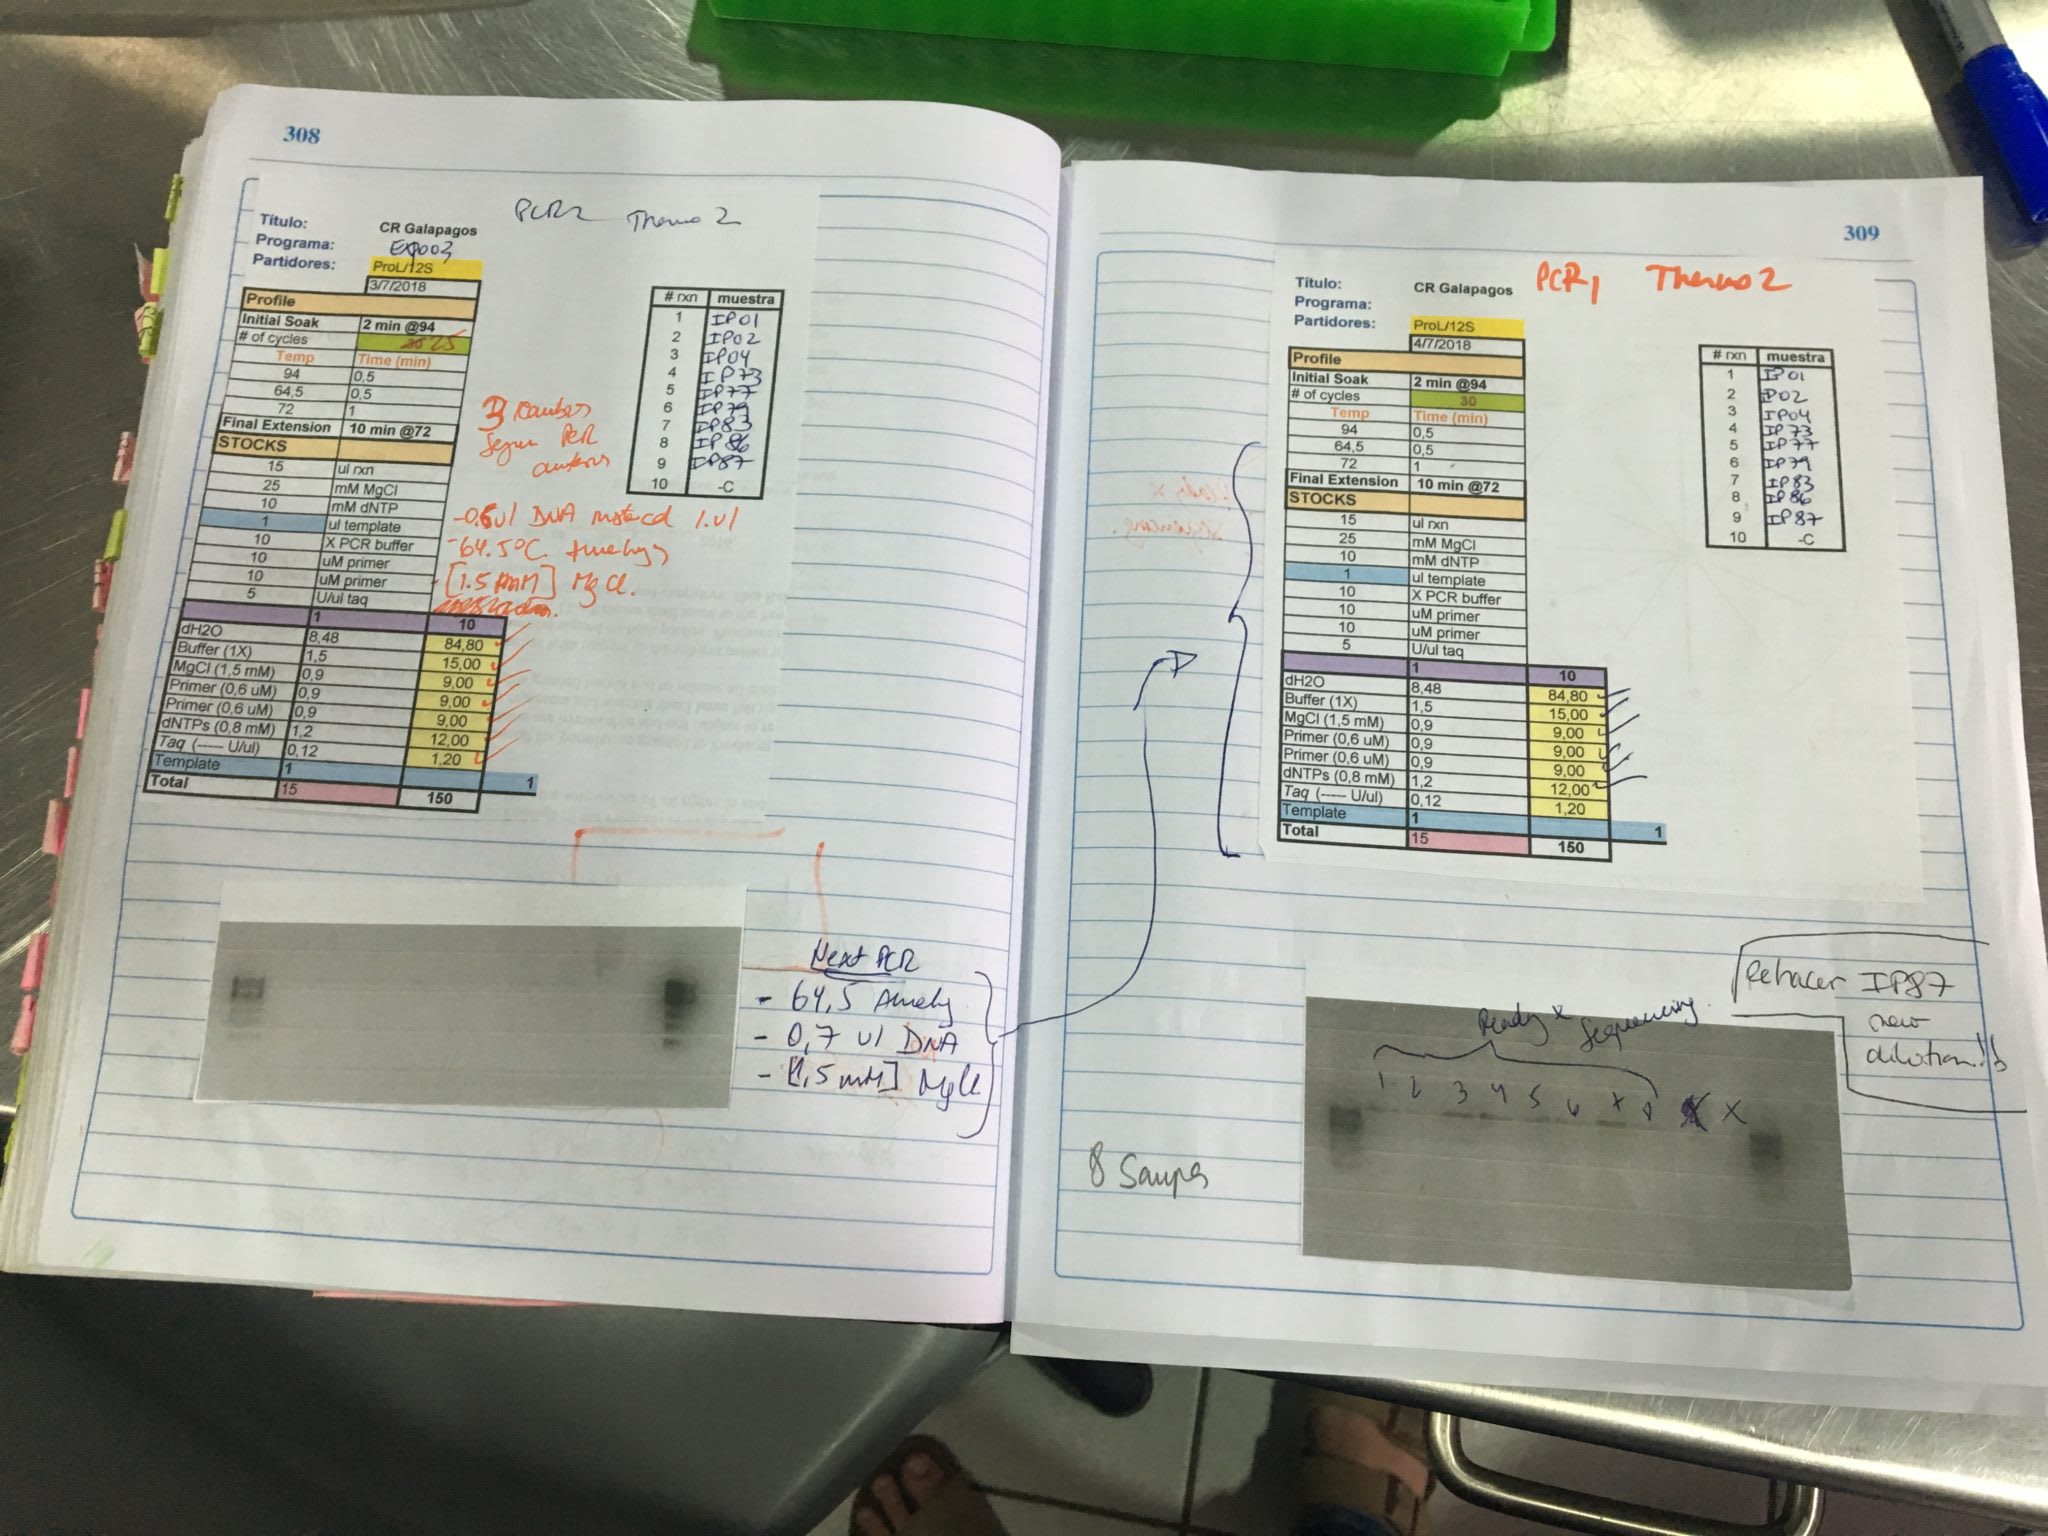 308
PCR2 Thermo 2
Título: CR Galapagos
Programa: EXP003
Partidores: ProL/12S
3/7/2018
Profile
Initial Soak 2 min @94
# of cycles 30 25
Temp Time (min)
94 0,5
64,5 0,5
72 1
Final Extension 10 min @72
STOCKS
15 ul rxn
25 mM MgCl
10 mM dNTP
1 ul template
10 X PCR buffer
10 uM primer
10 uM primer
5 U/ul taq
1 10
dH2O 8,48 84,80
Buffer (1X) 1,5 15,00
MgCl (1,5 mM) 0,9 9,00
Primer (0,6 uM) 0,9 9,00
Primer (0,6 uM) 0,9 9,00
dNTPs (0,8 mM) 1,2 12,00
Taq (---- U/ul) 0,12 1,20
Template 1 1
Total 15 150
# rxn muestra
1 IP01
2 IP02
3 IP04
4 IP73
5 IP77
6 IP79
7 IP83
8 IP86
9 IP87
10 -C
3 cambios
segun PCR
-0.6ul DNA instead 1.ul
-64.5°C
-[1.5 mM] MgCl.
Next PCR
- 64,5
- 0,7 ul DNA
- [1,5 mM] MgCl
309
PCR1 Thermo 2
Título: CR Galapagos
Programa:
Partidores: ProL/12S
4/7/2018
Profile
Initial Soak 2 min @94
# of cycles 30
Temp Time (min)
94 0,5
64,5 0,5
72 1
Final Extension 10 min @72
STOCKS
15 ul rxn
25 mM MgCl
10 mM dNTP
1 ul template
10 X PCR buffer
10 uM primer
10 uM primer
5 U/ul taq
1 10
dH2O 8,48 84,80
Buffer (1X) 1,5 15,00
MgCl (1,5 mM) 0,9 9,00
Primer (0,6 uM) 0,9 9,00
Primer (0,6 uM) 0,9 9,00
dNTPs (0,8 mM) 1,2 12,00
Taq (---- U/ul) 0,12 1,20
Template 1 1
Total 15 150
# rxn muestra
1 IP01
2 IP02
3 IP04
4 IP73
5 IP77
6 IP79
7 IP83
8 IP86
9 IP87
10 -C
Ready x Sequencing.
1 2 3 4 5 6 7 8 X
Rehacer IP87
new
dilution!!
8 Samples